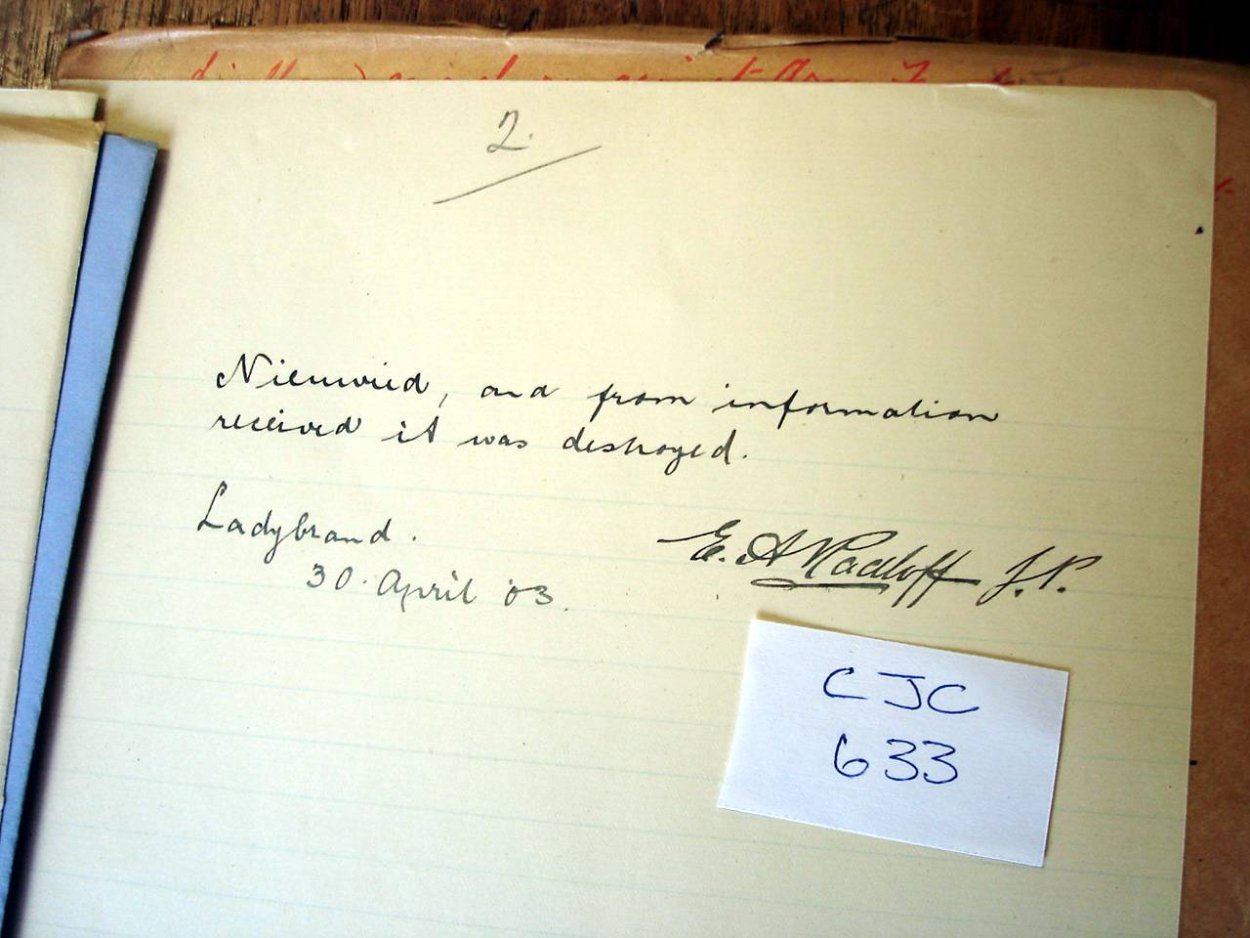 2.
Nieuwried, and from information
received it was destroyed.
Ladybrand.
30. April '03.
E. A. Radloff J.P.
CJC
633